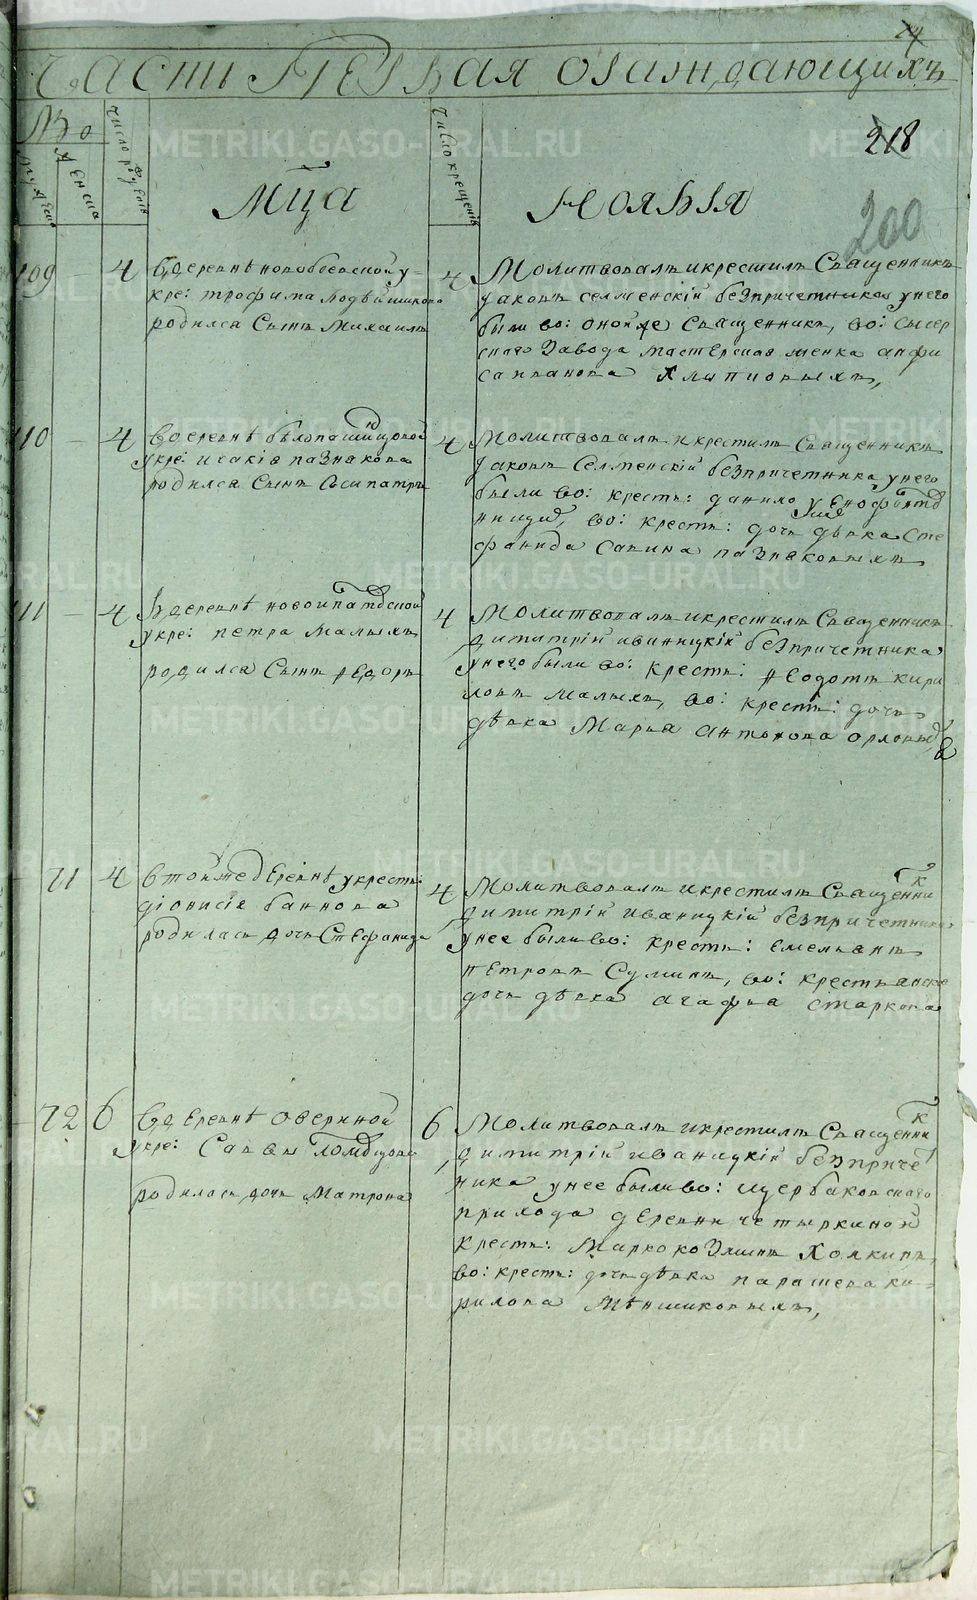 Часть первая ораждающихъ
218
200
№о
мужеска
женска
число рожденія
число крещенія
Мца
ноября
109 4 В деревнѣ новобоевской у
кре: трофима
родился Сынъ Михаилъ
4 Молитвовалъ и крестилъ Священникъ
Іаковъ селменскій безпричетника у него
были во: оной же Священникъ, во: Сысер
скаго Завода мастерская женка анфи
са иванова
110 4 Во деревнѣ
у кре: исакія пазнакова
родился Сынъ Сосипатръ
4 Молитвовалъ и крестилъ Священникъ
Іаковъ Селменскій безпричетника у него
были во: кресть: данило
во: кресть: дочь дѣвка Сте
фанида Савина пазнаковыхъ
111 4 В деревнѣ новоипатовской
у кре: петра Малыхъ
родился Сынъ ѳедоръ
4 Молитвовалъ и крестилъ Священникъ
димитрій иваницкій безпричетника
у него были во: кресть: ѳедотъ кири
ловъ Малыхъ, во: кресть: дочь
дѣвка Марья антонова орловыхъ
71 4 В той же деревнѣ у кресть:
діонисія баннова
родилась дочь Стефанида
4 Молитвовалъ и крестилъ Священникъ
димитрій иваницкій безпричетника
у нее были во: кресть: емельянъ
петровъ Суминъ, во: крестьянская
дочь дѣвка агафья Старкова
72 6 В деревнѣ
у кре: Саввы
родилась дочь Матрона
6 Молитвовалъ и крестилъ Священникъ
димитрій иваницкій безпричет
ника у нее были во: щербаковскаго
прихода деревни четыркиной
кресть: Марко козминъ
во: кресть: дочь дѣвка парасковья ки
рилова Мѣншиковыхъ,
METRIKI.GASO-URAL.RU